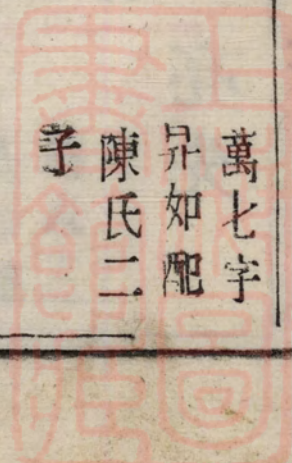 萬七字
昇如配
陳氏二
子